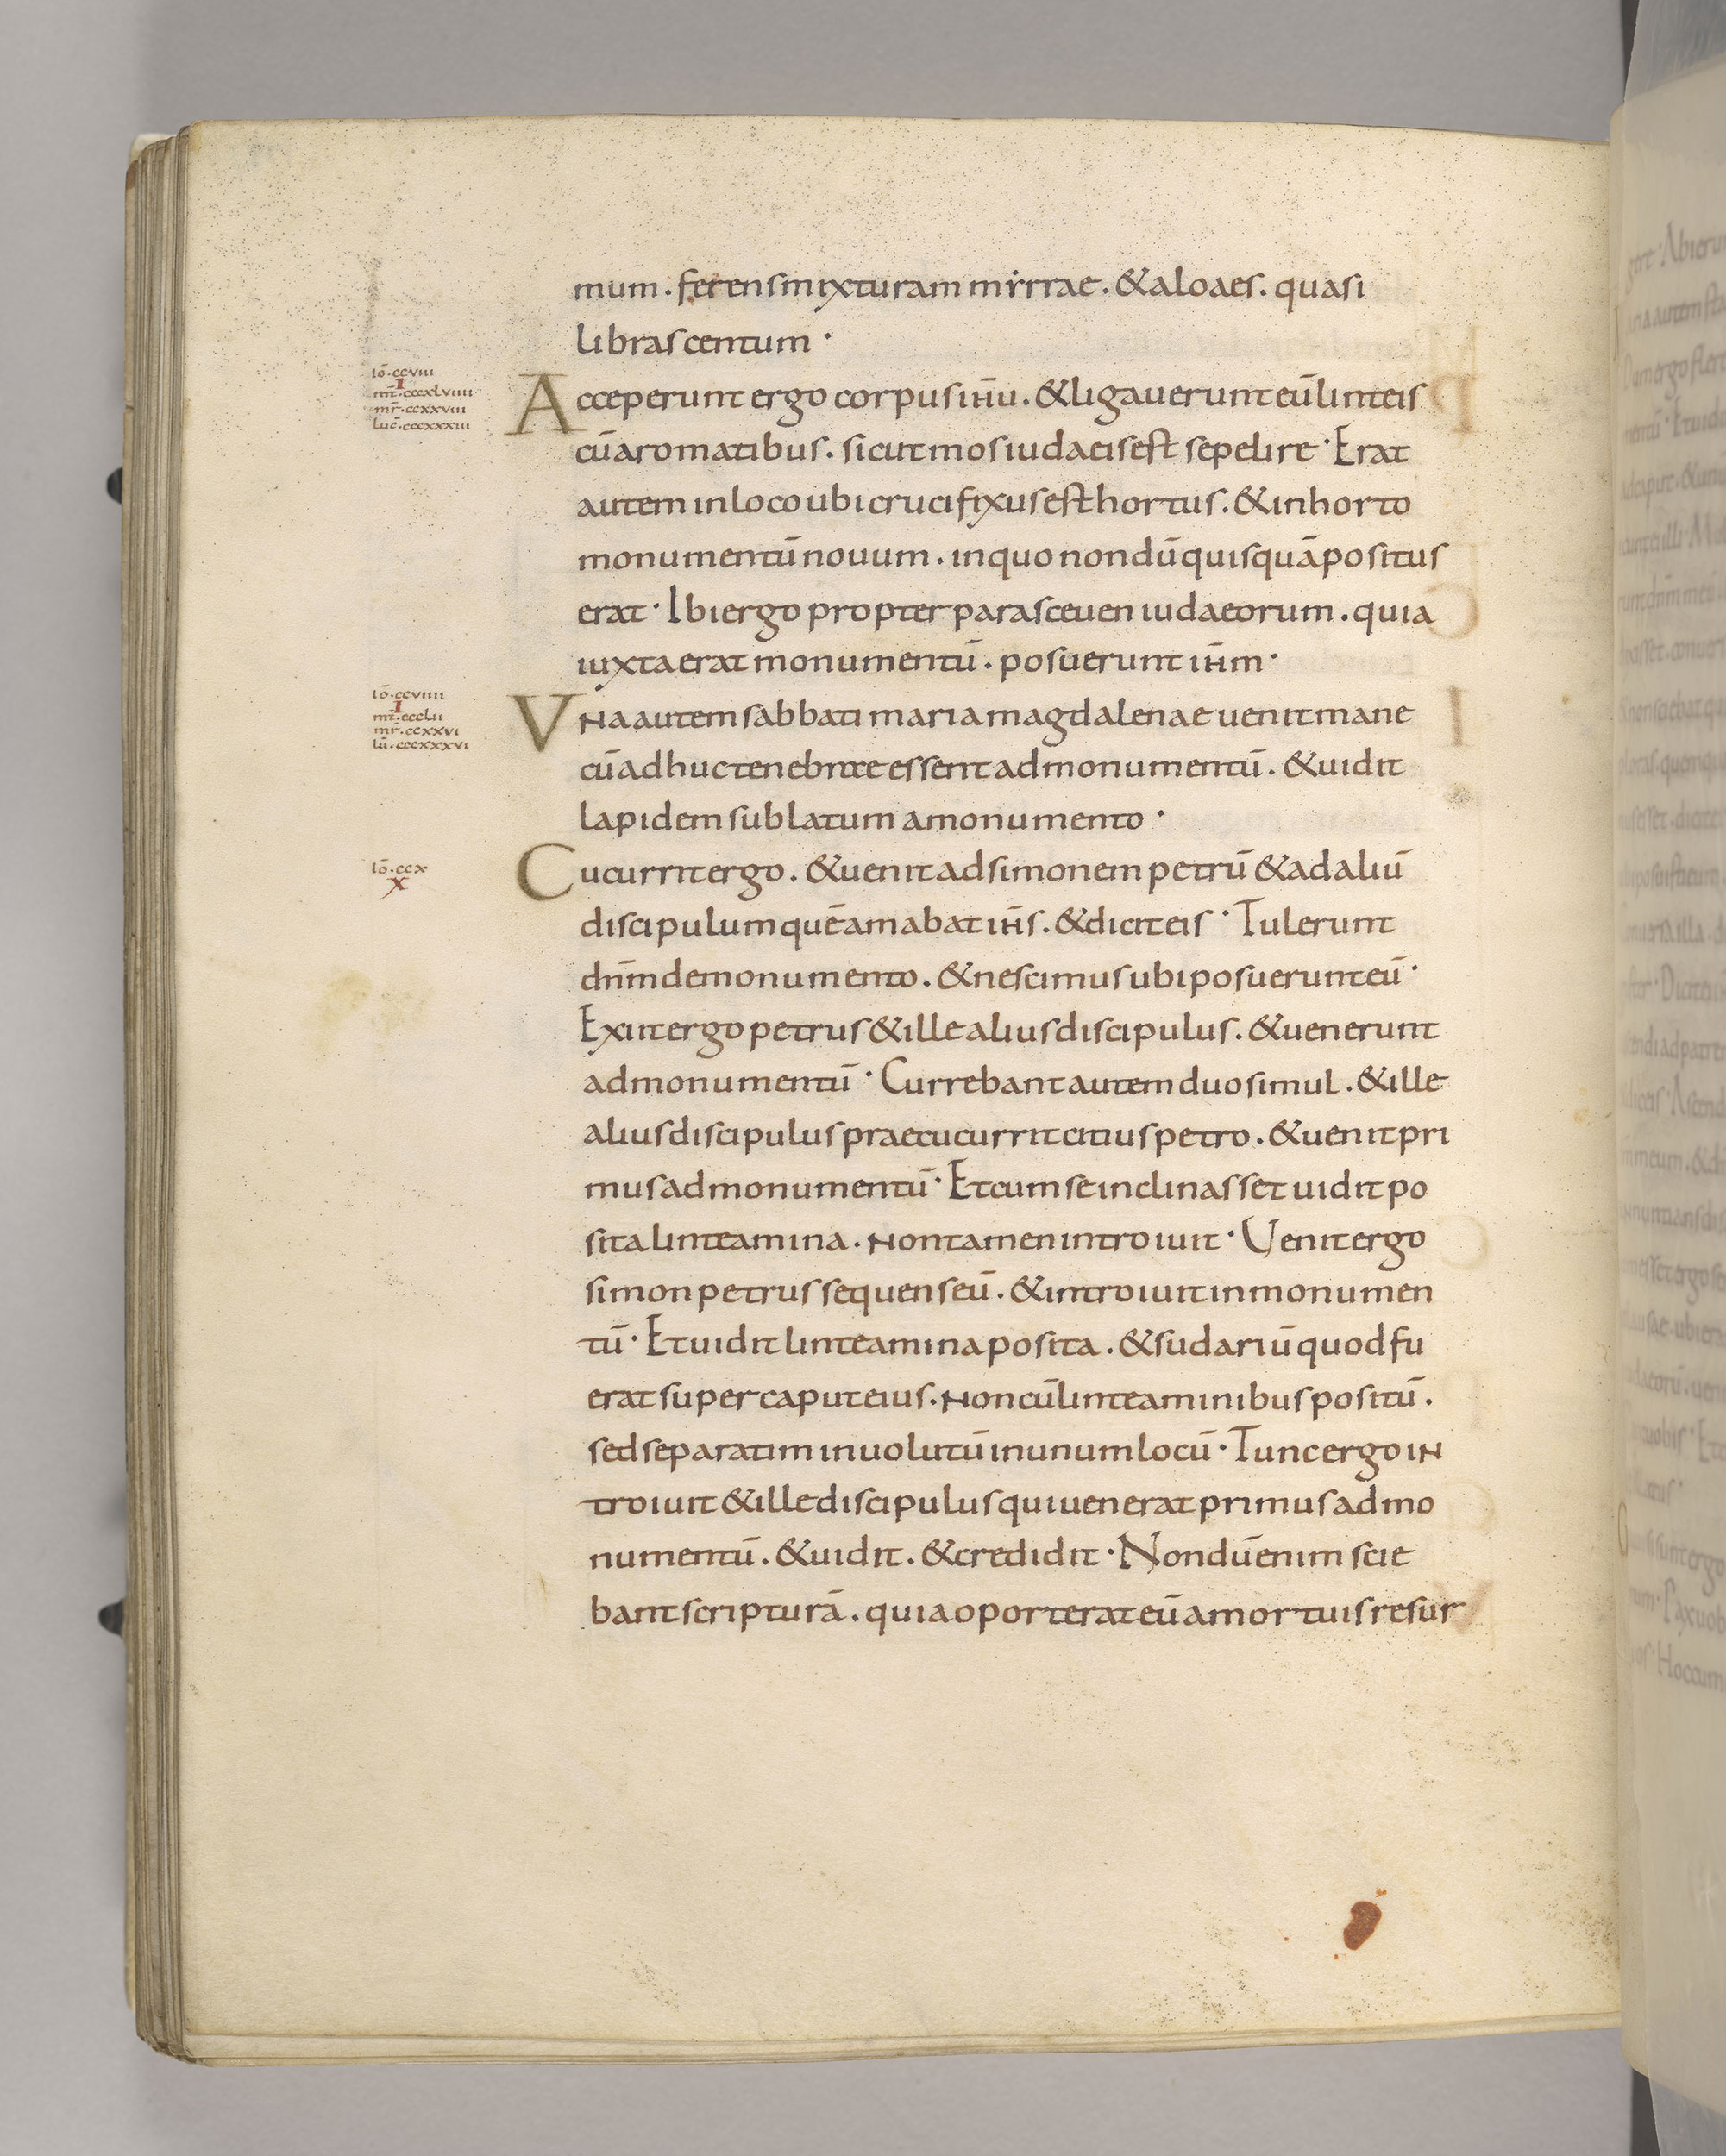 mum. ferens mixturam mirrae. & aloaes. quasi
libras centum·
iō·ccviii
I
mt̄·cccxlviiii
mr̄·ccxxviii
luc̄·cccxxxiii
Acceperunt ergo corpus ih̄u. & ligauerunt eū linteis
cū aromatibus. sicut mos iudaeis est sepelire· Erat
autem in loco ubi crucifixus est hortus. & in horto
monumentū nouum. in quo nondū quisquā positus
erat· Ibi ergo propter parasceuen iudaeorum. quia
iuxta erat monumentū. posuerunt ih̄m·
iō·ccviiii
I
mt̄·ccclii
mr̄·ccxxvi
lū·cccxxxvi
Vna autem sabbati maria magdalenae uenit mane
cū adhuc tenebrae essent ad monumentū. & uidit
lapidem sublatum a monumento·
iō·ccx
X
Cucurrit ergo. & uenit ad simonem petrū & ad aliū
discipulum quē amabat ih̄s. & dicit eis· Tulerunt
dn̄m de monumento. & nescimus ubi posuerunt eū·
Exiit ergo petrus & ille alius discipulus. & uenerunt
ad monumentū· Currebant autem duo simul. & ille
alius discipulus praecucurrit citius petro. & uenit pri
mus ad monumentū· Et cum se inclinasset uidit po
sita linteamina. Non tamen introiuit· Uenit ergo
simon petrus sequens eū. & introiuit in monumen
tū· Et uidit linteamina posita. & sudariū quod fu
erat super caput eius. Non cū linteaminibus positū.
sed separatim inuolutū in unum locū· Tunc ergo in
troiuit & ille discipulus qui uenerat primus ad mo
numentū. & uidit. & credidit· Nondū enim scie
bant scripturā. quia oporterat eū a mortuis resur